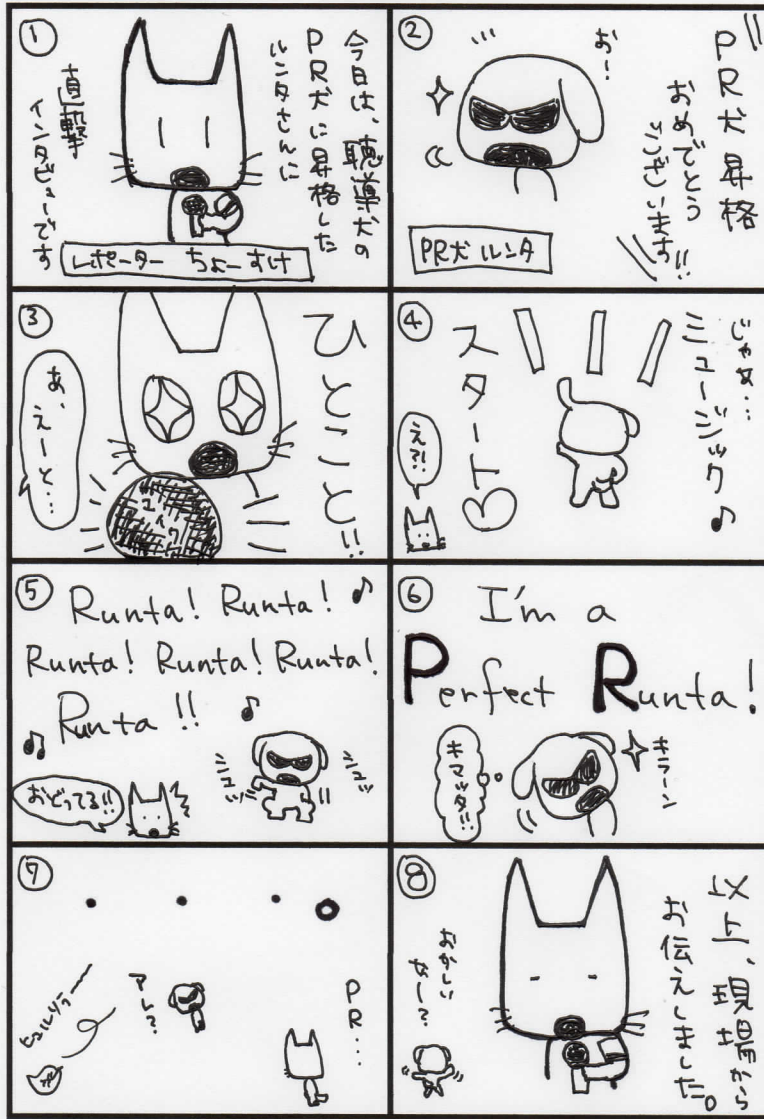 ①
今日は、聴導犬の
PR犬に昇格した
ルンタさんに
直撃
インタビューです
レポーター ちょーすけ
②
PR犬昇格
おめでとう
ございます!!
お!
PR犬 ルンタ
③
ひとこと!!
あ、
えーと…
マイク
④
じゃあ…
ミュージック♪
スタート♡
え?!
⑤
Runta! Runta! ♪
Runta! Runta! Runta!
Runta!!
シュッ
シュッ
おどってる!!
⑥
I'm a
Perfect Runta!
キラーン
キマッタ!!
⑦
PR…
アレ?
ヒュルリラ〜
⑧
以上、現場から
お伝えしました。
おかしい
なー?